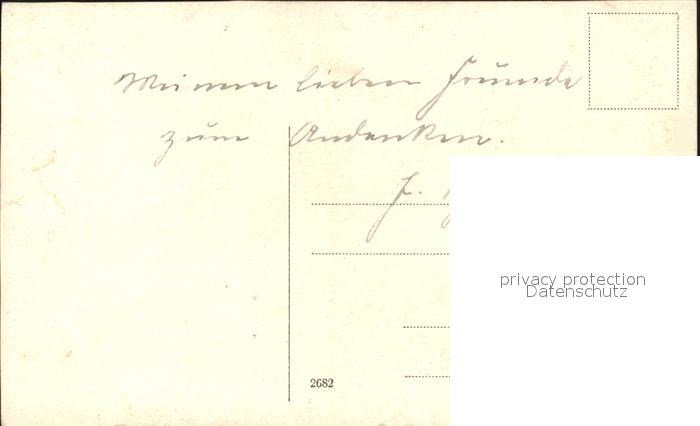 Meinem lieben Freunde
zum Andenken.
privacy protection
Datenschutz
2682